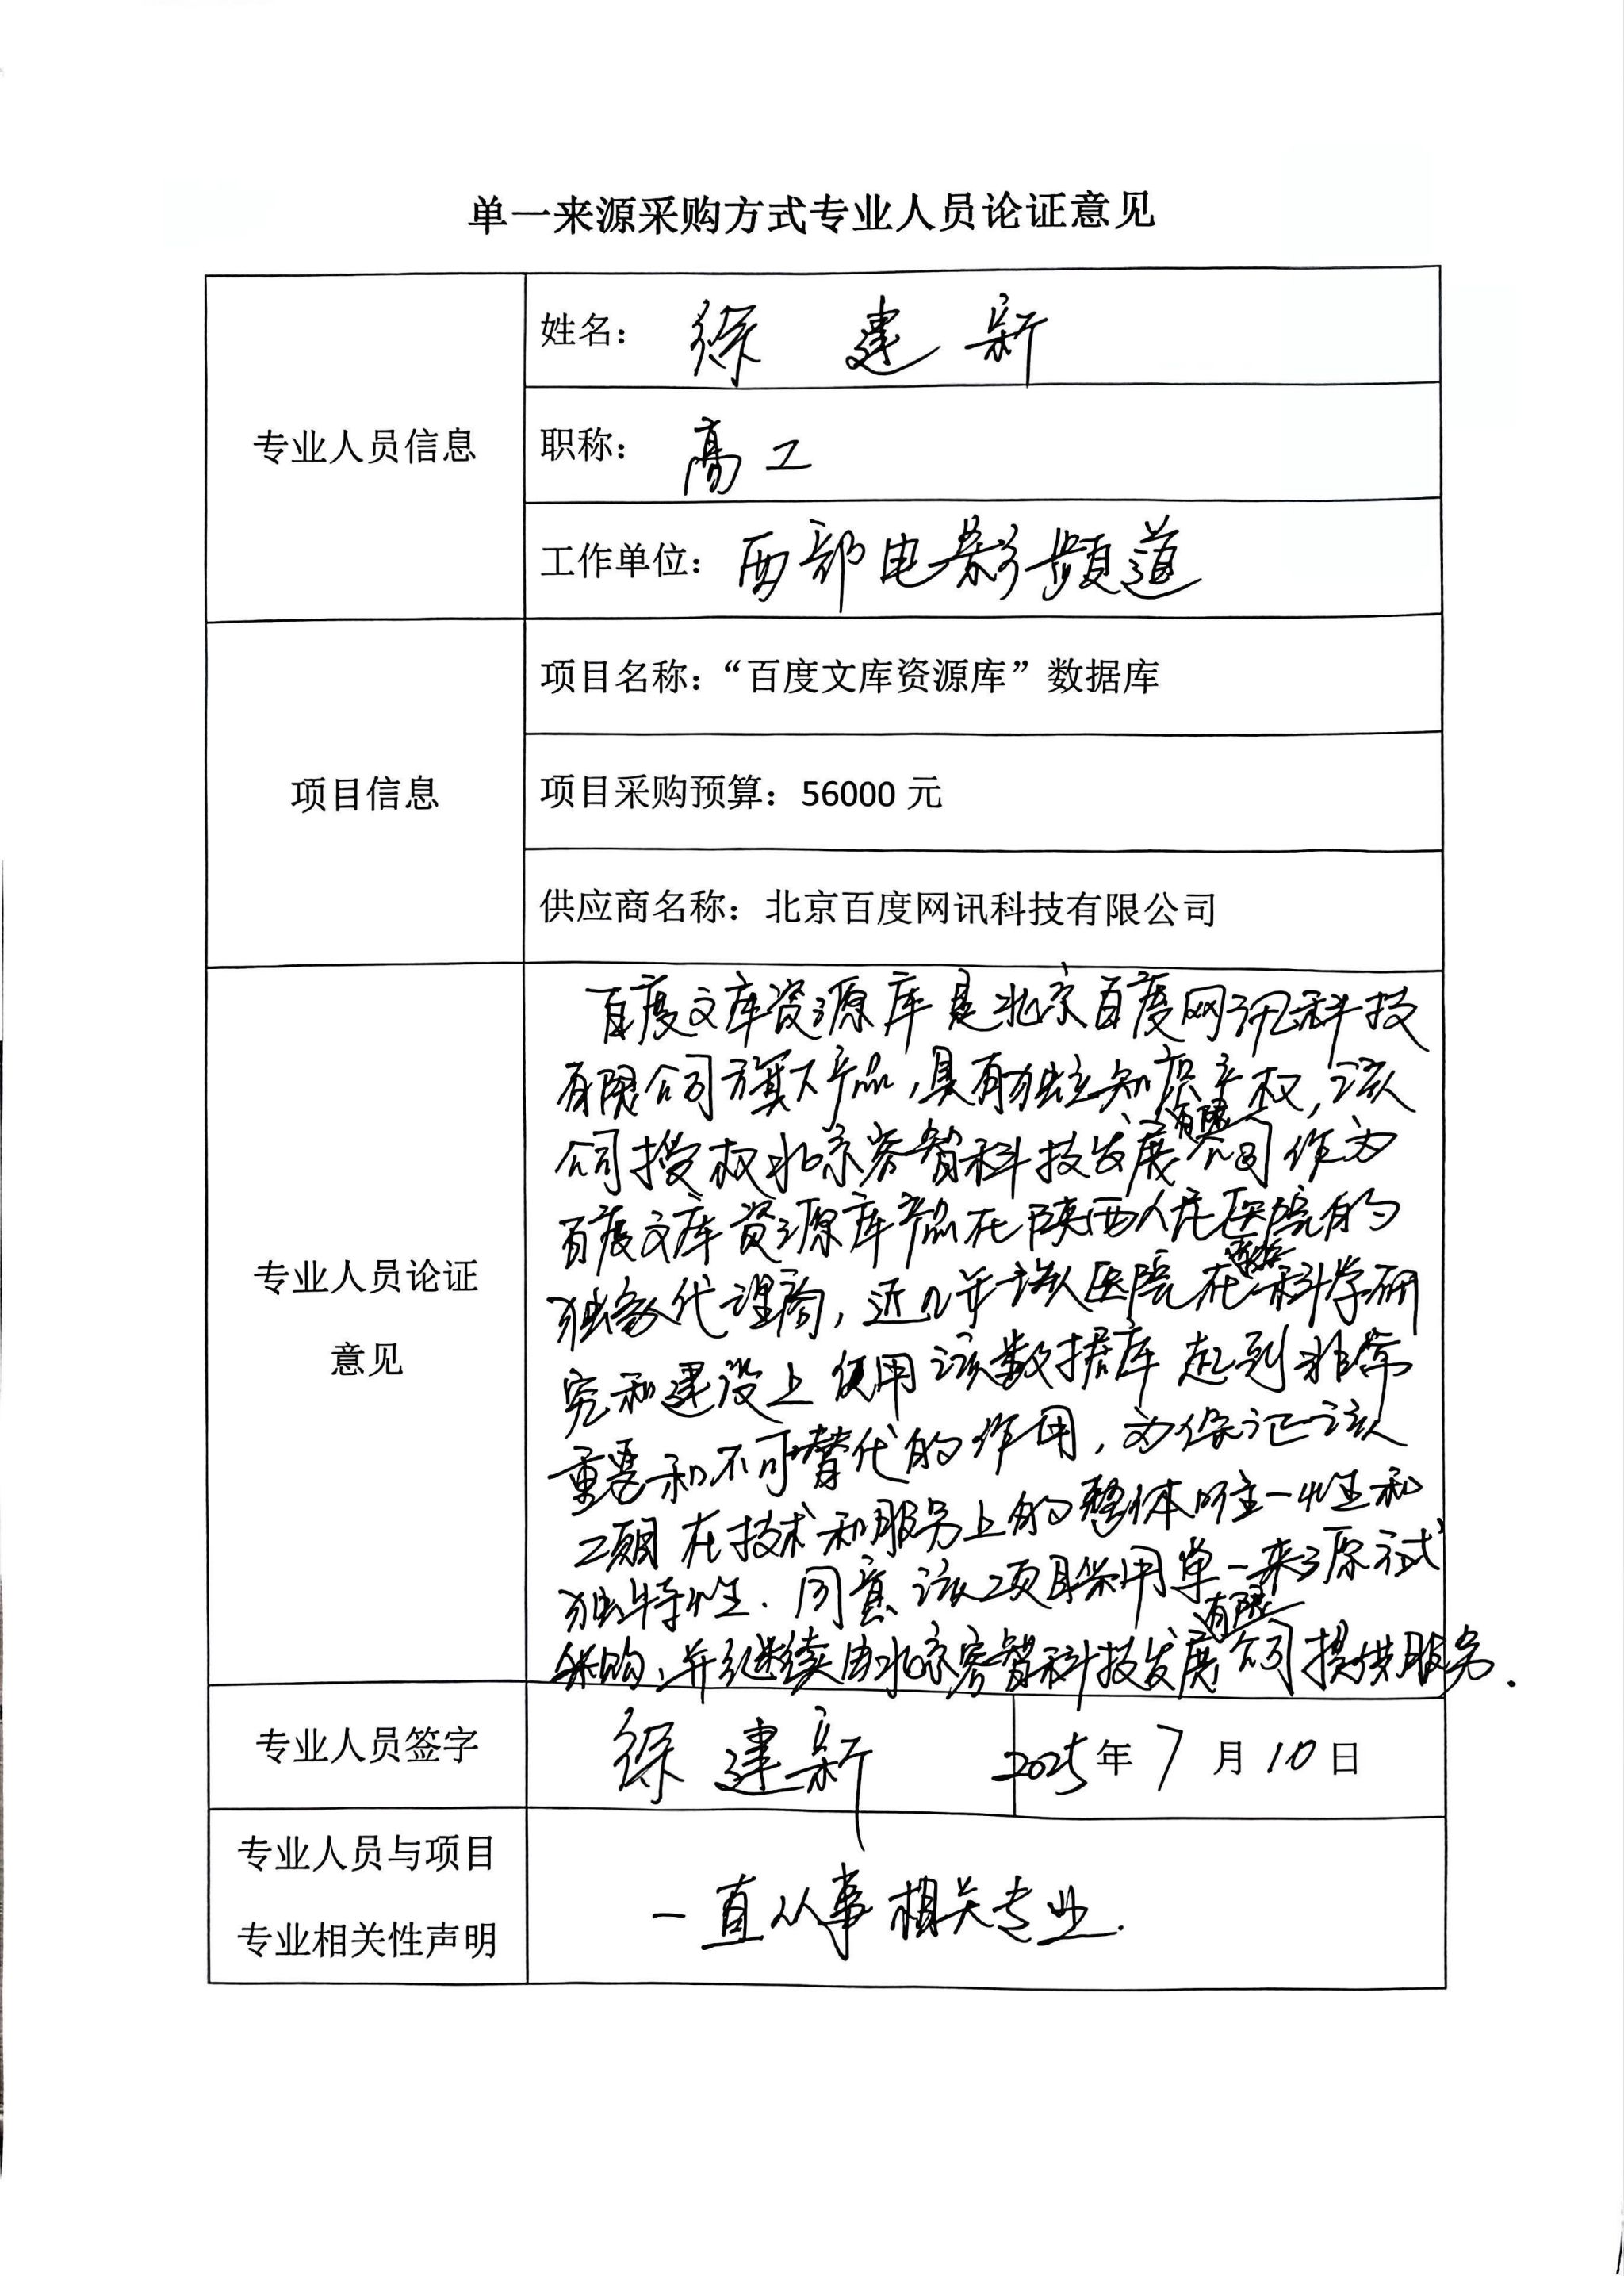 单一来源采购方式专业人员论证意见
专业人员信息
姓名： 徐建新
职称： 高工
工作单位： 西部电影频道
项目信息
项目名称：“百度文库资源库”数据库
项目采购预算：56000 元
供应商名称：北京百度网讯科技有限公司
专业人员论证
意见
百度文库资源库是北京百度网讯科技
有限公司旗下产品，具有独立知识产权，该
公司授权北京容智科技发展有限公司作为
百度文库资源库产品在陕西人民医院的
独家代理商，近几年该医院在科学研
究和建设上使用该数据库起到非常
重要和不可替代的作用，为保证该
项目在技术和服务上的整体唯一性和
独特性．同意该项目采用单一来源方式
采购，并继续由北京容智科技发展有限公司提供服务．
专业人员签字
徐建新
2025年7月10日
专业人员与项目
专业相关性声明
一直从事相关专业．